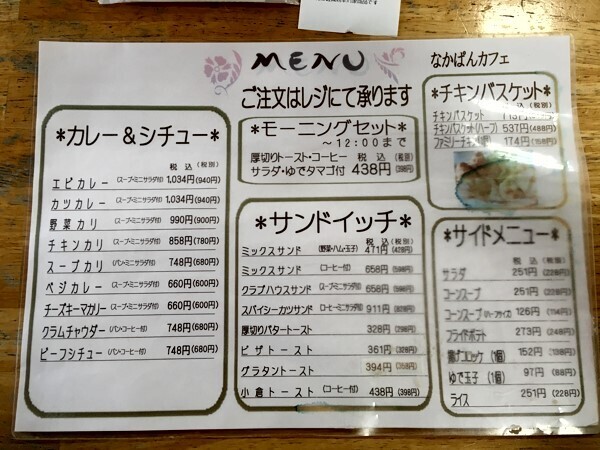 MENU
なかぱんカフェ
ご注文はレジにて承ります
*カレー＆シチュー*
税込(税別)
エビカレー (スープ・ミニサラダ付) 1,034円(940円)
カツカレー (スープ・ミニサラダ付) 1,034円(940円)
野菜カリ (スープ・ミニサラダ付) 990円(900円)
チキンカリ (スープ・ミニサラダ付) 858円(780円)
スープカリ (パン・ミニサラダ付) 748円(680円)
ベジカレー (スープ・ミニサラダ付) 660円(600円)
チーズキーマカリー (スープ・ミニサラダ付) 660円(600円)
クラムチャウダー (パン・コーヒー付) 748円(680円)
ビーフシチュー (パン・コーヒー付) 748円(680円)
*モーニングセット*
～12:00まで
厚切りトースト・コーヒー 税込 (税別)
サラダ・ゆでタマゴ付 438円(398円)
*サンドイッチ*
税込(税別)
ミックスサンド (野菜・ハム・玉子) 471円(428円)
ミックスサンド (コーヒー付) 658円(598円)
クラブハウスサンド (スープ・ミニサラダ付) 658円(598円)
スパイシーカツサンド (コーヒー・ミニサラダ付) 911円
厚切りバタートースト 328円(298円)
ピザトースト 361円(328円)
グラタントースト 394円(358円)
小倉トースト (コーヒー付) 438円(398円)
*チキンバスケット*
税込 (税別)
チキンバスケット
チキンバスケット(ハーフ) 537円(488円)
ファミリーチキン 174円(158円)
*サイドメニュー*
税込(税別)
サラダ 251円(228円)
コーンスープ 251円(228円)
コーンスープ (ハーフサイズ) 126円(114円)
フライドポテト 273円(248円)
コロッケ (1個) 152円(138円)
ゆで玉子 (1個) 97円(88円)
ライス 251円(228円)